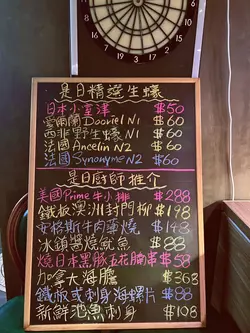 是日精選生蠔
日本小室津 $50
愛爾蘭 Dooriel N1 $60
西非野生蠔 N1 $60
法國 Ancelin N2 $60
法國 Synonyme N2 $60
是日廚師推介
美國Prime牛小排 $288
鐵板澳洲封門柳 $198
安格斯牛肉薄燒 $148
冰鎮醬燒魷魚 $88
燒日本黑豚五花腩串 $58
加拿大海膽 $368
鐵板或刺身海螺片 $88
新鮮池魚刺身 $108